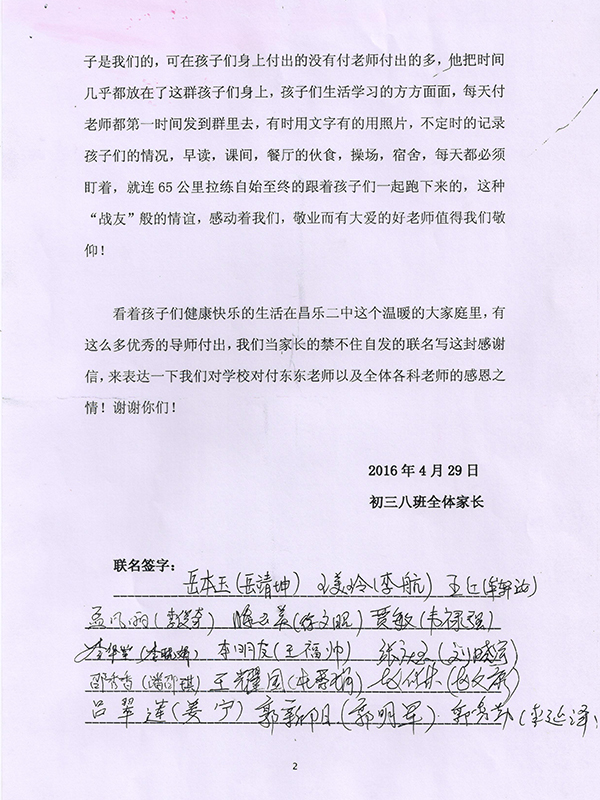 子是我们的，可在孩子们身上付出的没有付老师付出的多，他把时间
几乎都放在了这群孩子们身上，孩子们生活学习的方方面面，每天付
老师都第一时间发到群里去，有时用文字有的用照片，不定时的记录
孩子们的情况，早读，课间，餐厅的伙食，操场，宿舍，每天都必须
盯着，就连 65 公里拉练自始至终的跟着孩子们一起跑下来的，这种
“战友”般的情谊，感动着我们，敬业而有大爱的好老师值得我们敬
仰！
看着孩子们健康快乐的生活在昌乐二中这个温暖的大家庭里，有
这么多优秀的导师付出，我们当家长的禁不住自发的联名写这封感谢
信，来表达一下我们对学校对付东东老师以及全体各科老师的感恩之
情！谢谢你们！
2016 年 4 月 29 日
初三八班全体家长
联名签字：
岳本玉(岳靖坤) 王美玲(李航)
贾敏(韦禄强)
李明友(王福帅)
邵秀香(潘邵琪) 王耀国
吕翠莲(姜宁) 郭新明(郭明军)
2